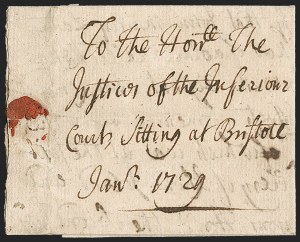 To the Honble The
Justices of the Inferiour
Court Sitting at Bristoll
Janr. 1729